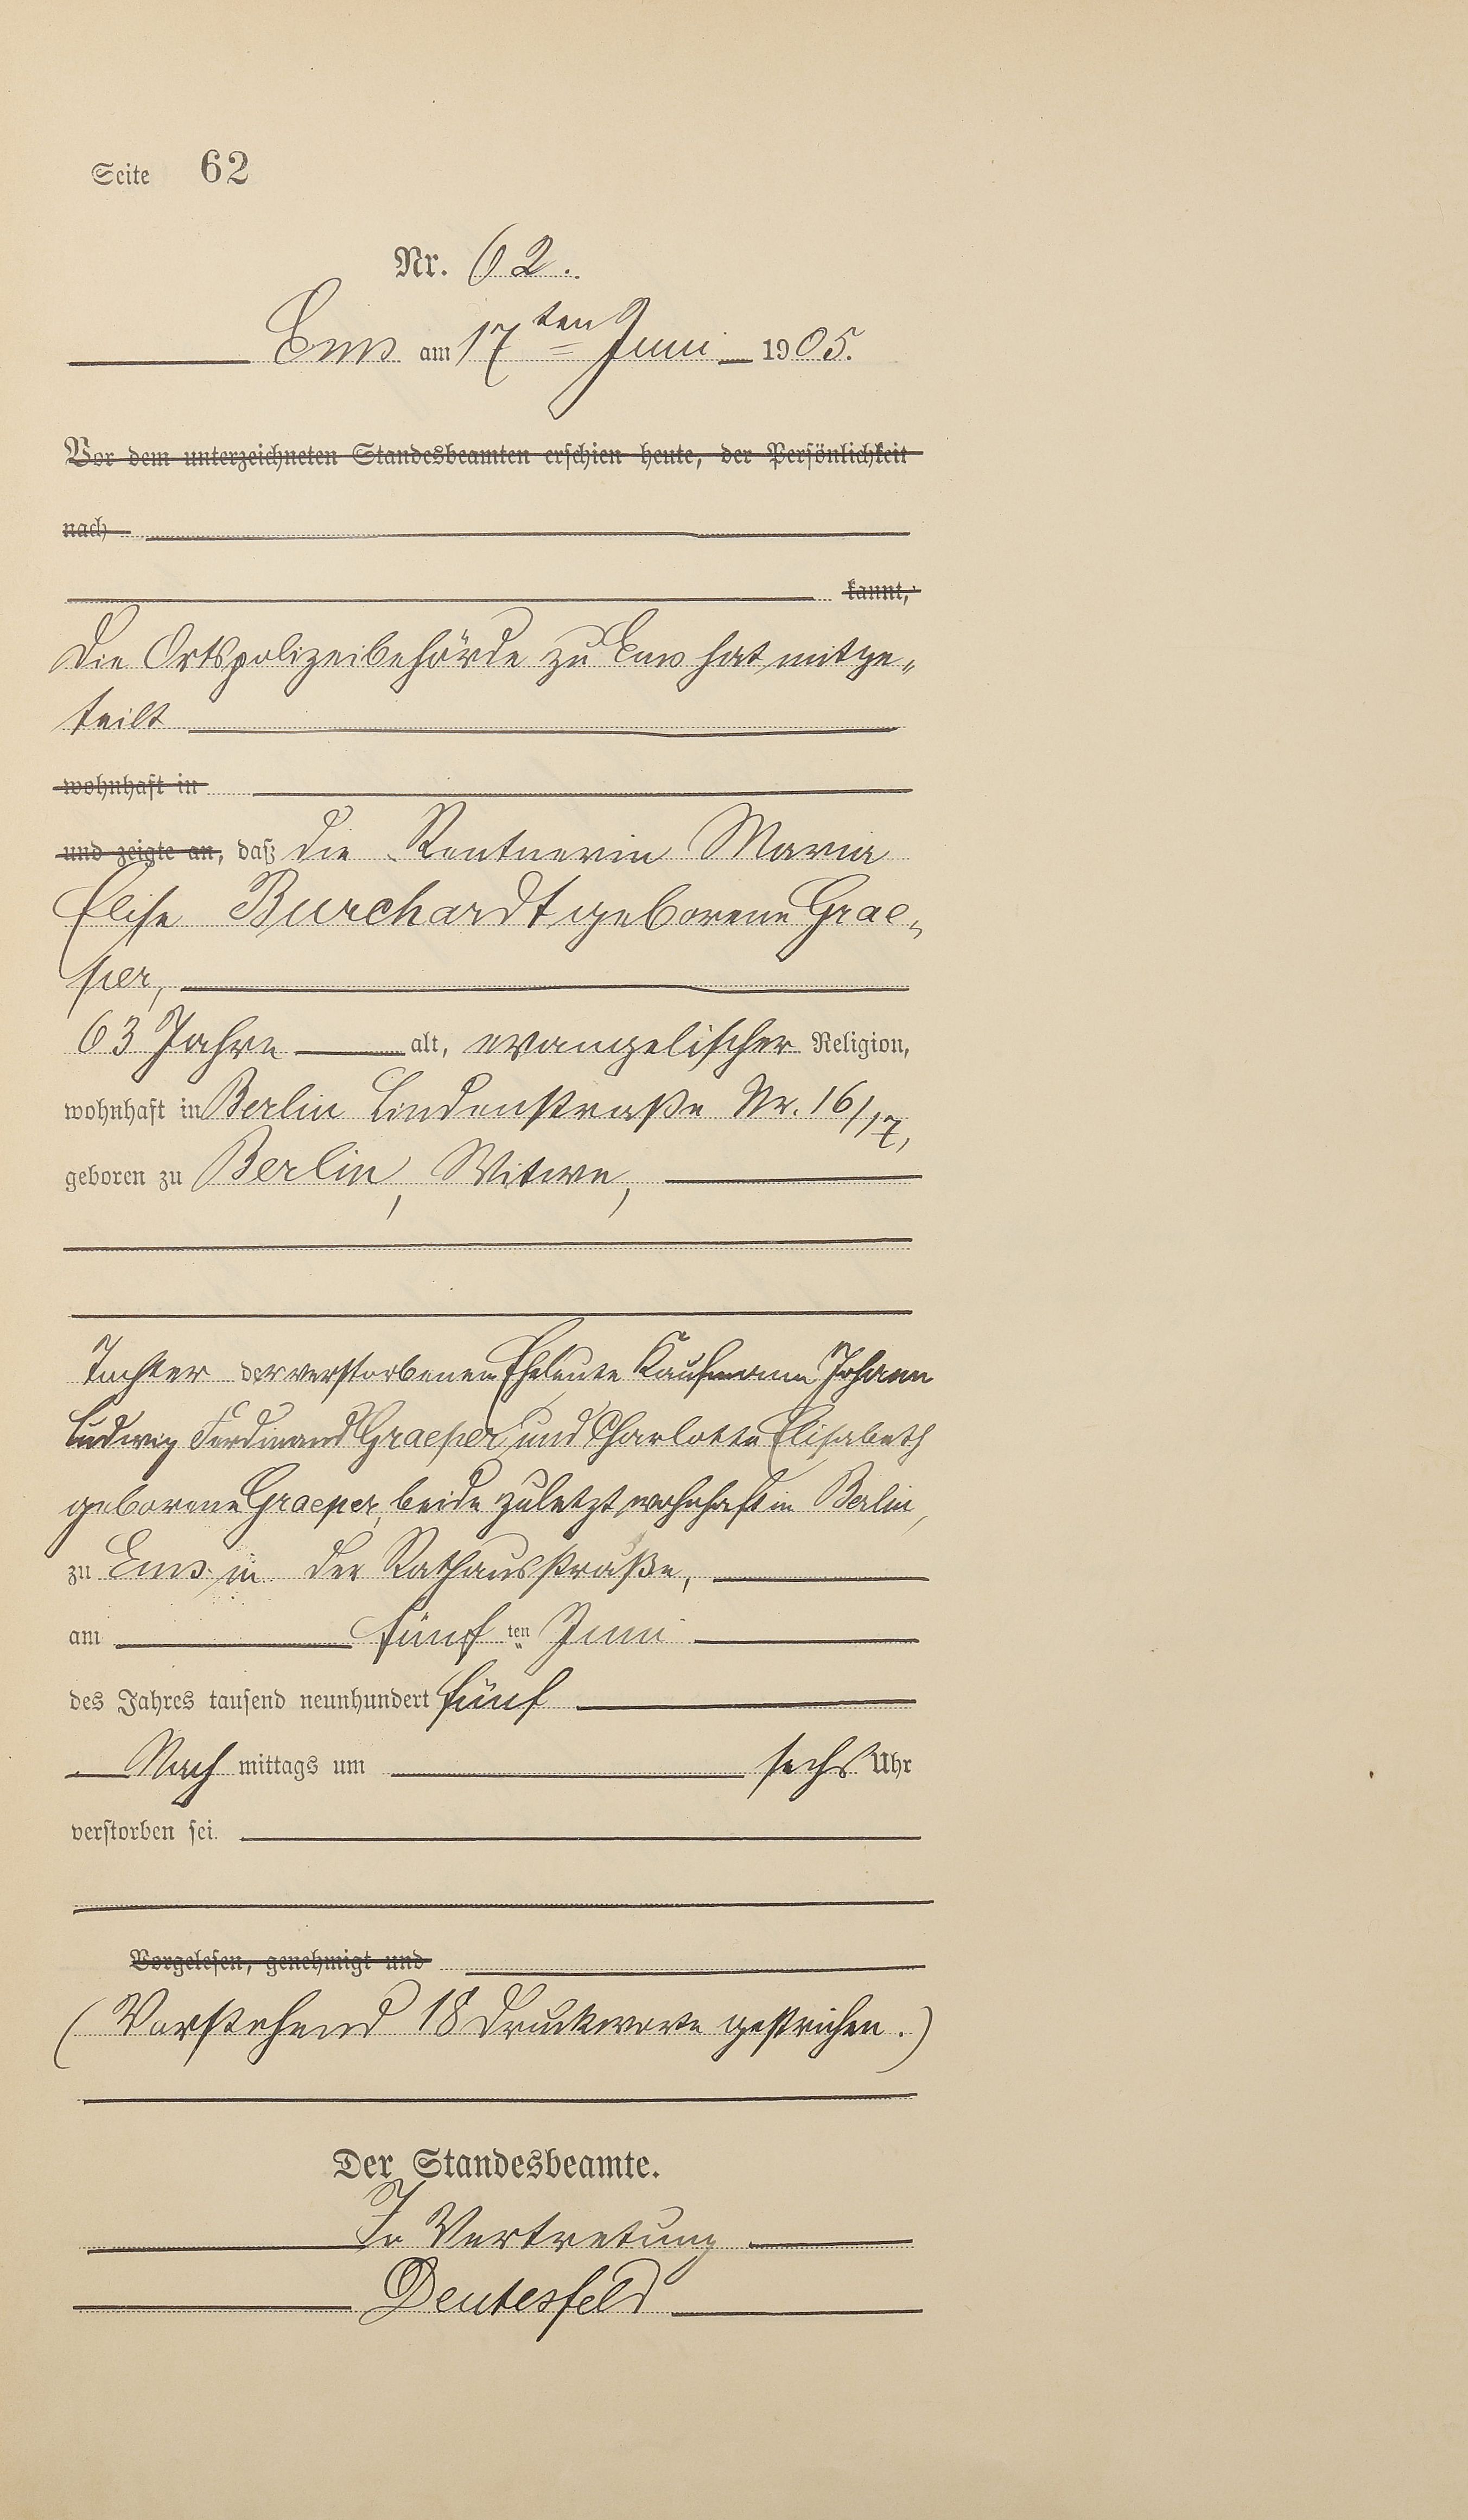 Seite 62
Nr. 62.
Ems am 17ten Juni 1905.
Vor dem unterzeichneten Standesbeamten erschien heute, der Persönlichkeit
nach
kannt,
Die Ortspolizeibehörde zu Ems hat mitge„
teilt
wohnhaft in
und zeigte an, daß die Rentnerin Maria
Elise Burchardt geborene Grae„
per,
63 Jahre alt, evangelischer Religion,
wohnhaft in Berlin Lindenstraße Nr. 16/17,
geboren zu Berlin, Witwe,
Tochter der verstorbenen Eheleute Kaufmann Johann
Ludwig Ferdinand Graeper und Charlotte Elisabeth
geborene Graeper, beide zuletzt wohnhaft in Berlin,
zu Ems in der Rathausstraße,
am fünf ten Juni
des Jahres tausend neunhundert fünf
Nach mittags um sechs Uhr
verstorben sei.
Vorgelesen, genehmigt und
(Vorstehend 18 Druckworte gestrichen.)
Der Standesbeamte.
In Vertretung
Deutesfeld